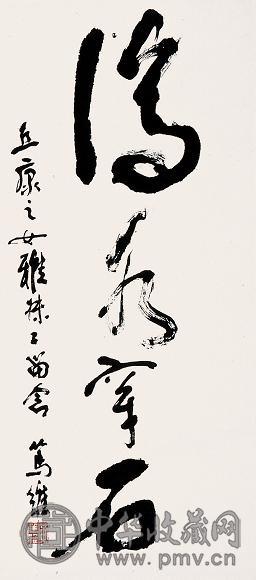 滴水穿石
丘康之女雅 留念 篤維
中华收藏网
www.pmv.cn